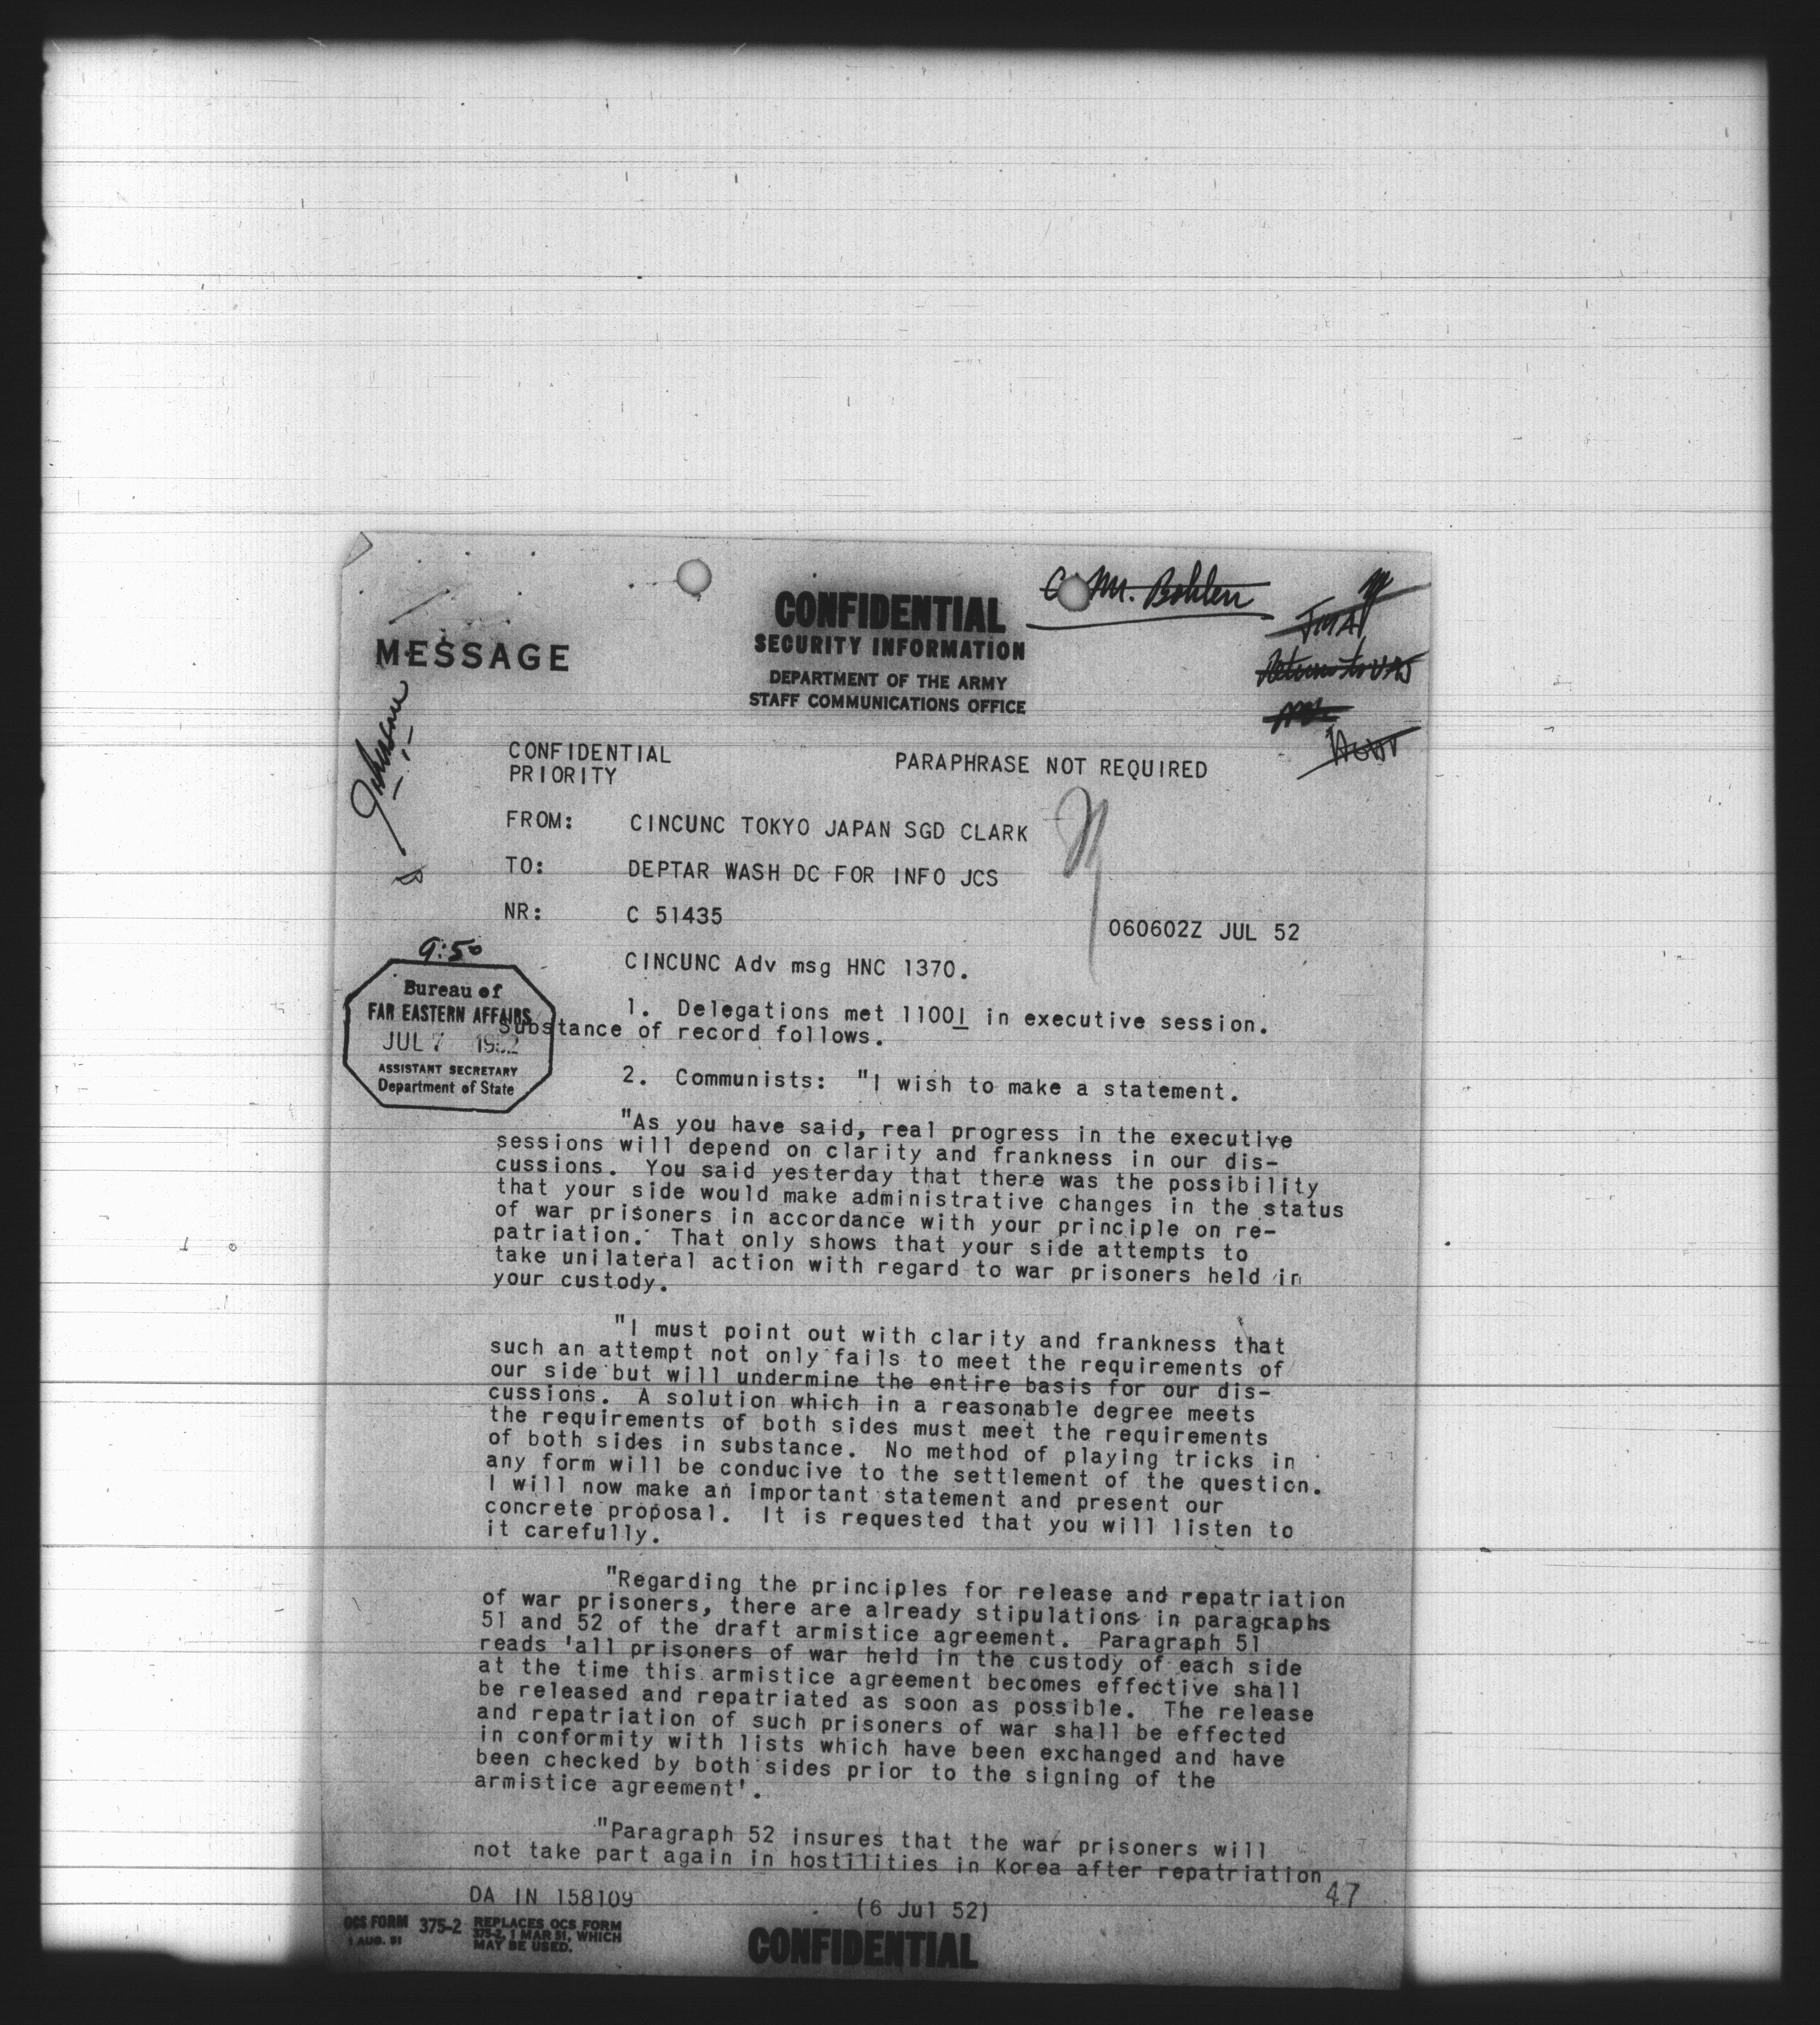 C. M. Bohlen
CONFIDENTIAL
SECURITY INFORMATION
MESSAGE
DEPARTMENT OF THE ARMY
STAFF COMMUNICATIONS OFFICE
Johnson
CONFIDENTIAL
PARAPHRASE NOT REQUIRED
PRIORITY
FROM: CINCUNC TOKYO JAPAN SGD CLARK
TO: DEPTAR WASH DC FOR INFO JCS
NR: C 51435
060602Z JUL 52
9:50
CINCUNC Adv msg HNC 1370.
Bureau of
FAR EASTERN AFFAIRS
JUL 7 1952
ASSISTANT SECRETARY
Department of State
1. Delegations met 1100I in executive session.
Substance of record follows.
2. Communists: "I wish to make a statement.
"As you have said, real progress in the executive
sessions will depend on clarity and frankness in our dis-
cussions. You said yesterday that there was the possibility
that your side would make administrative changes in the status
of war prisoners in accordance with your principle on re-
patriation. That only shows that your side attempts to
take unilateral action with regard to war prisoners held in
your custody.
"I must point out with clarity and frankness that
such an attempt not only fails to meet the requirements of
our side but will undermine the entire basis for our dis-
cussions. A solution which in a reasonable degree meets
the requirements of both sides must meet the requirements
of both sides in substance. No method of playing tricks in
any form will be conducive to the settlement of the question.
I will now make an important statement and present our
concrete proposal. It is requested that you will listen to
it carefully.
"Regarding the principles for release and repatriation
of war prisoners, there are already stipulations in paragraphs
51 and 52 of the draft armistice agreement. Paragraph 51
reads 'all prisoners of war held in the custody of each side
at the time this armistice agreement becomes effective shall
be released and repatriated as soon as possible. The release
and repatriation of such prisoners of war shall be effected
in conformity with lists which have been exchanged and have
been checked by both sides prior to the signing of the
armistice agreement'.
"Paragraph 52 insures that the war prisoners will
not take part again in hostilities in Korea after repatriation
47
DA IN 158109
(6 Jul 52)
OCS FORM 375-2 REPLACES OCS FORM
1 AUG. 51 375-2, 1 MAR 51, WHICH
MAY BE USED.
CONFIDENTIAL